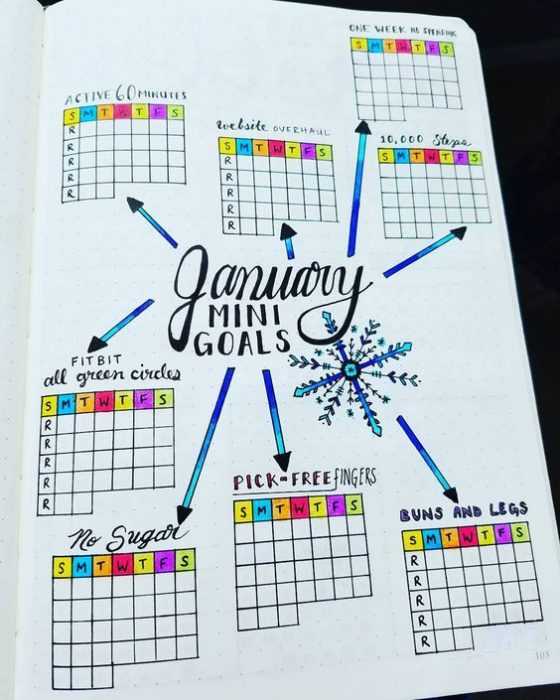 ONE WEEK NO SPENDING
S M T W T F S
ACTIVE 60 MINUTES
S M T W T F S
R
R
R
R
R
website OVERHAUL
S M T W T F S
R
R
R
R
R
10,000 Steps
S M T W T F S
January
MINI
GOALS
FITBIT
all green circles
S M T W T F S
R
R
R
R
R
PICK-FREE fINGERS
S M T W T F S
No Sugar
S M T W T F S
BUNS AND LEGS
S M T W T F S
R
R
R
R
R
105